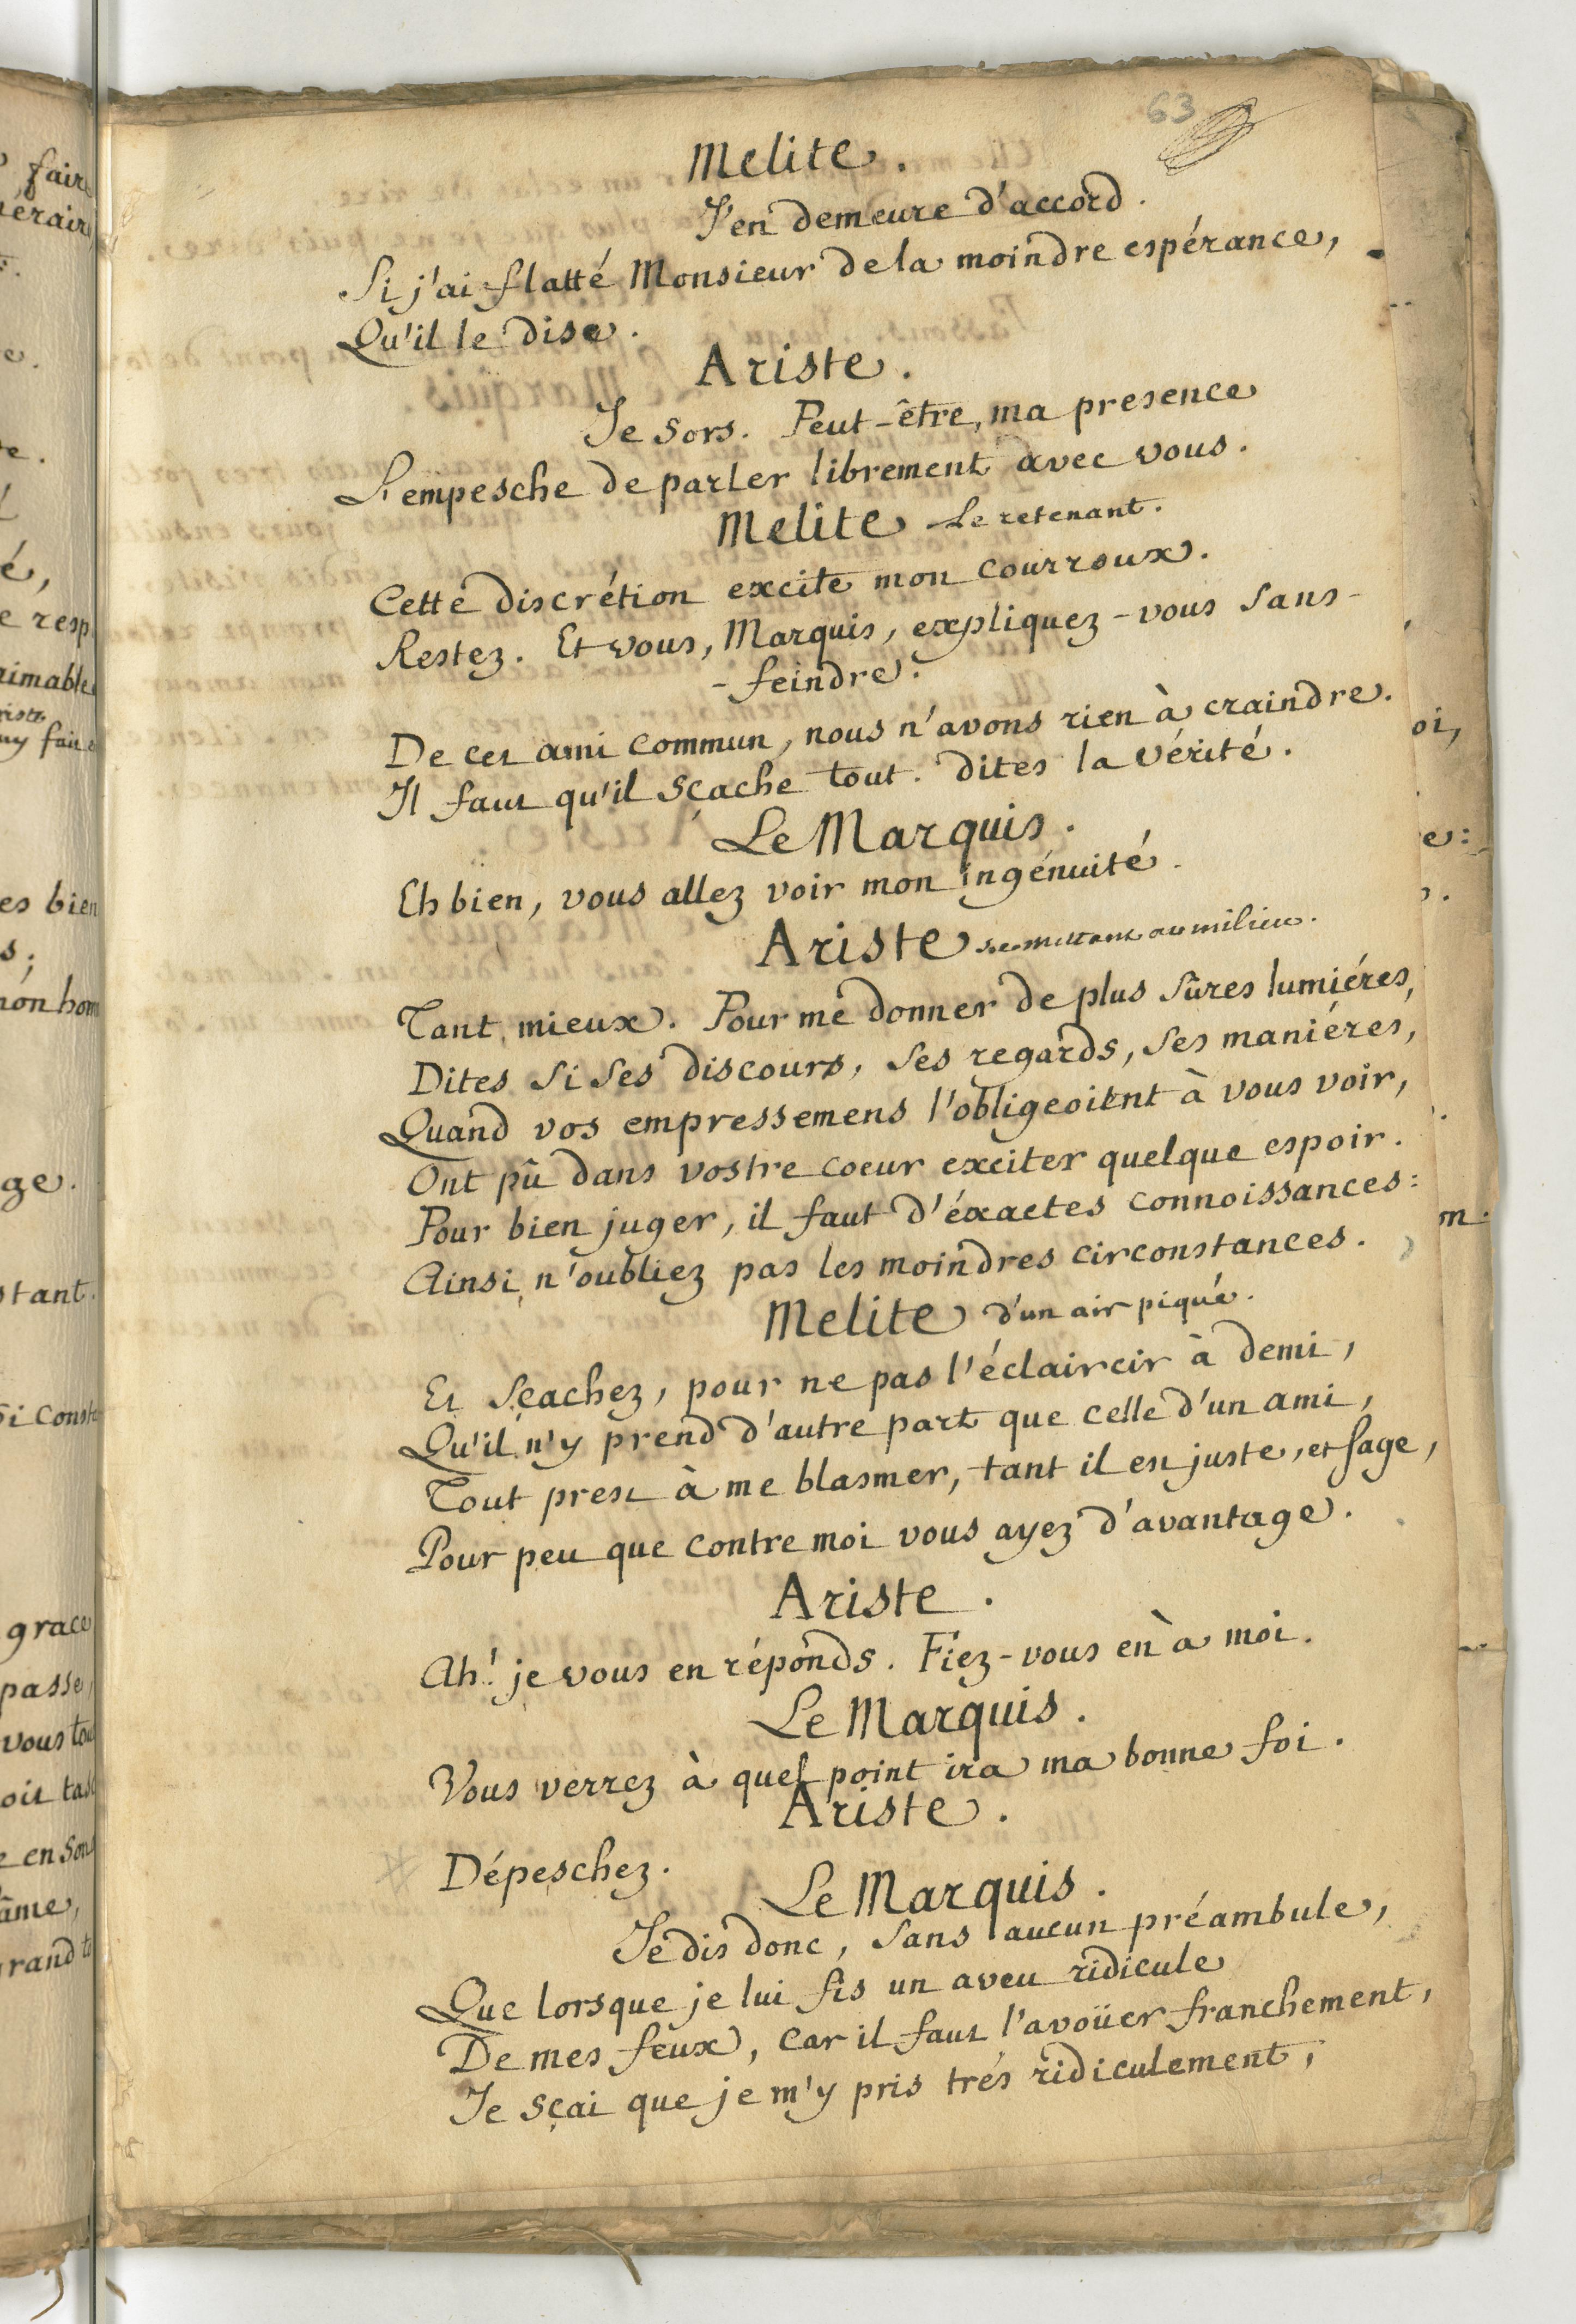 63
Melite.
J'en demeure d'accord.
Si j'ai flatté Monsieur de la moindre espérance,
Qu'il le dise.
Ariste.
Je sors. Peut-être, ma presence
L'empesche de parler librement avec vous.
Melite le retenant.
Cette discrétion excite mon courroux.
Restez. Et vous, Marquis, expliquez-vous sans-
-feindre.
De cet ami commun, nous n'avons rien à craindre.
Il faut qu'il sçache tout. dites la vérité.
Le Marquis.
Eh bien, vous allez voir mon ingénuité.
Ariste se mettant au milieu.
Tant mieux. Pour me donner de plus sûres lumiéres,
Dites si ses discours, ses regards, ses maniéres,
Quand vos empressemens l'obligeoient à vous voir,
Ont pû dans vostre coeur exciter quelque espoir.
Pour bien juger, il faut d'éxactes connoissances:
Ainsi, n'oubliez pas les moindres circonstances.
Melite d'un air piqué.
Et sçachez, pour ne pas l'éclaircir à demi,
Qu'il n'y prend d'autre part que celle d'un ami,
Tout prest à me blasmer, tant il est juste, et sage,
Pour peu que contre moi vous ayez d'avantage.
Ariste.
Ah! je vous en réponds. Fiez-vous en à moi.
Le Marquis.
Vous verrez à quel point ira ma bonne foi.
Ariste.
Dépeschez.
Le Marquis.
Je dis donc, sans aucun préambule,
Que lorsque je lui fis un aveu ridicule
De mes feux, car il faut l'avoüer franchement,
Je sçai que je m'y pris trés ridiculement,